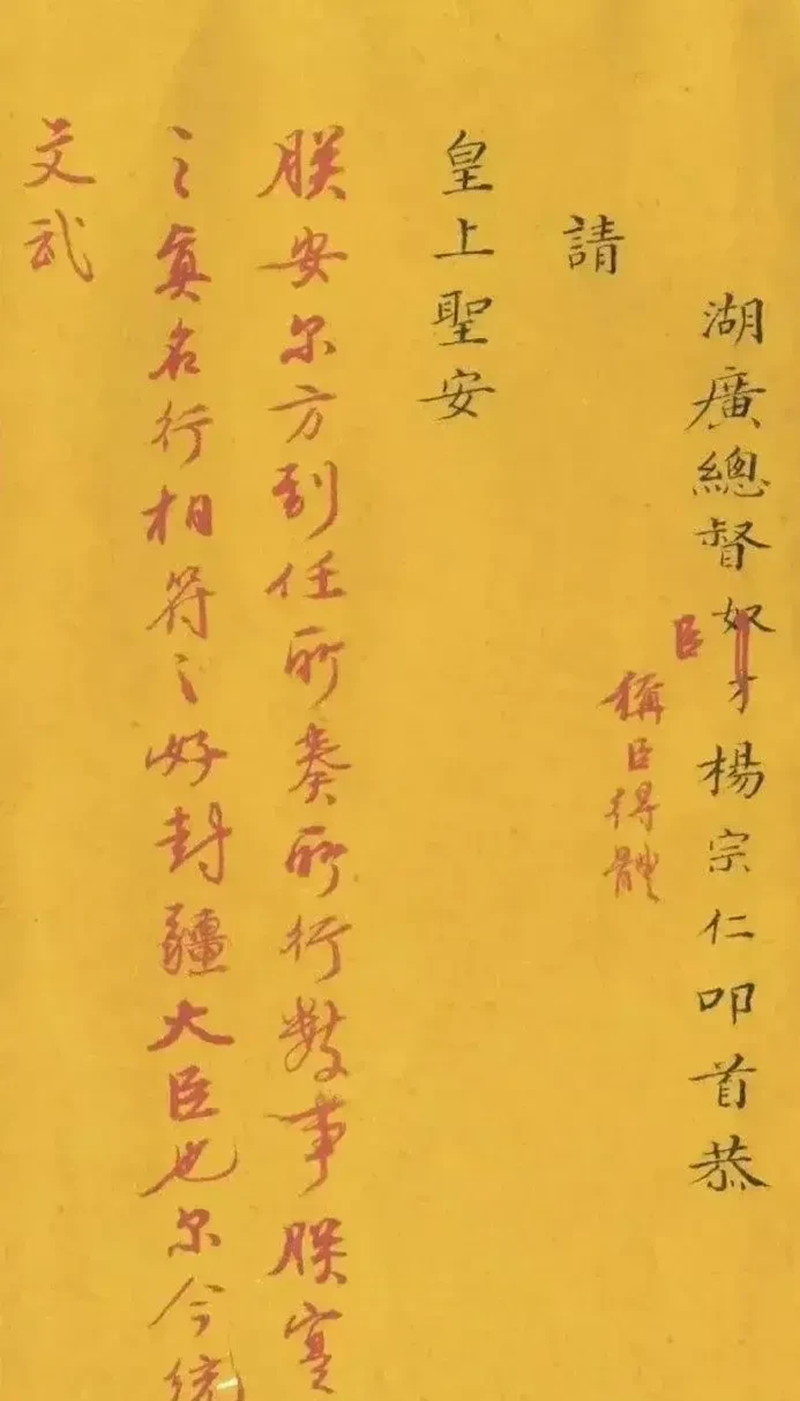 湖廣總督奴才楊宗仁叩首恭
臣
稱臣得體
請
皇上聖安
朕安尔方到任所奏所行數事朕寔
〻真名行相符之好封疆大臣也尔今統
文武